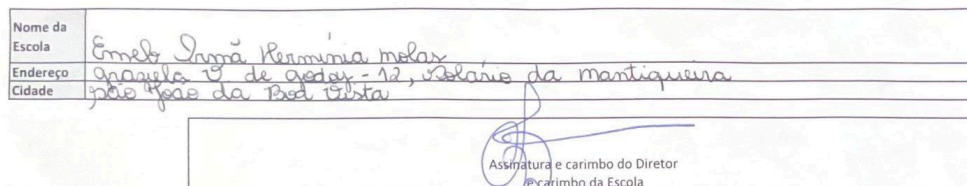 Nome da
Escola
Emeb Irmã Hermínia molas
Endereço
de godoy - 12, Solário da mantiqueira
Cidade
São João da Boa Vista
Assinatura e carimbo do Diretor
e carimbo da Escola